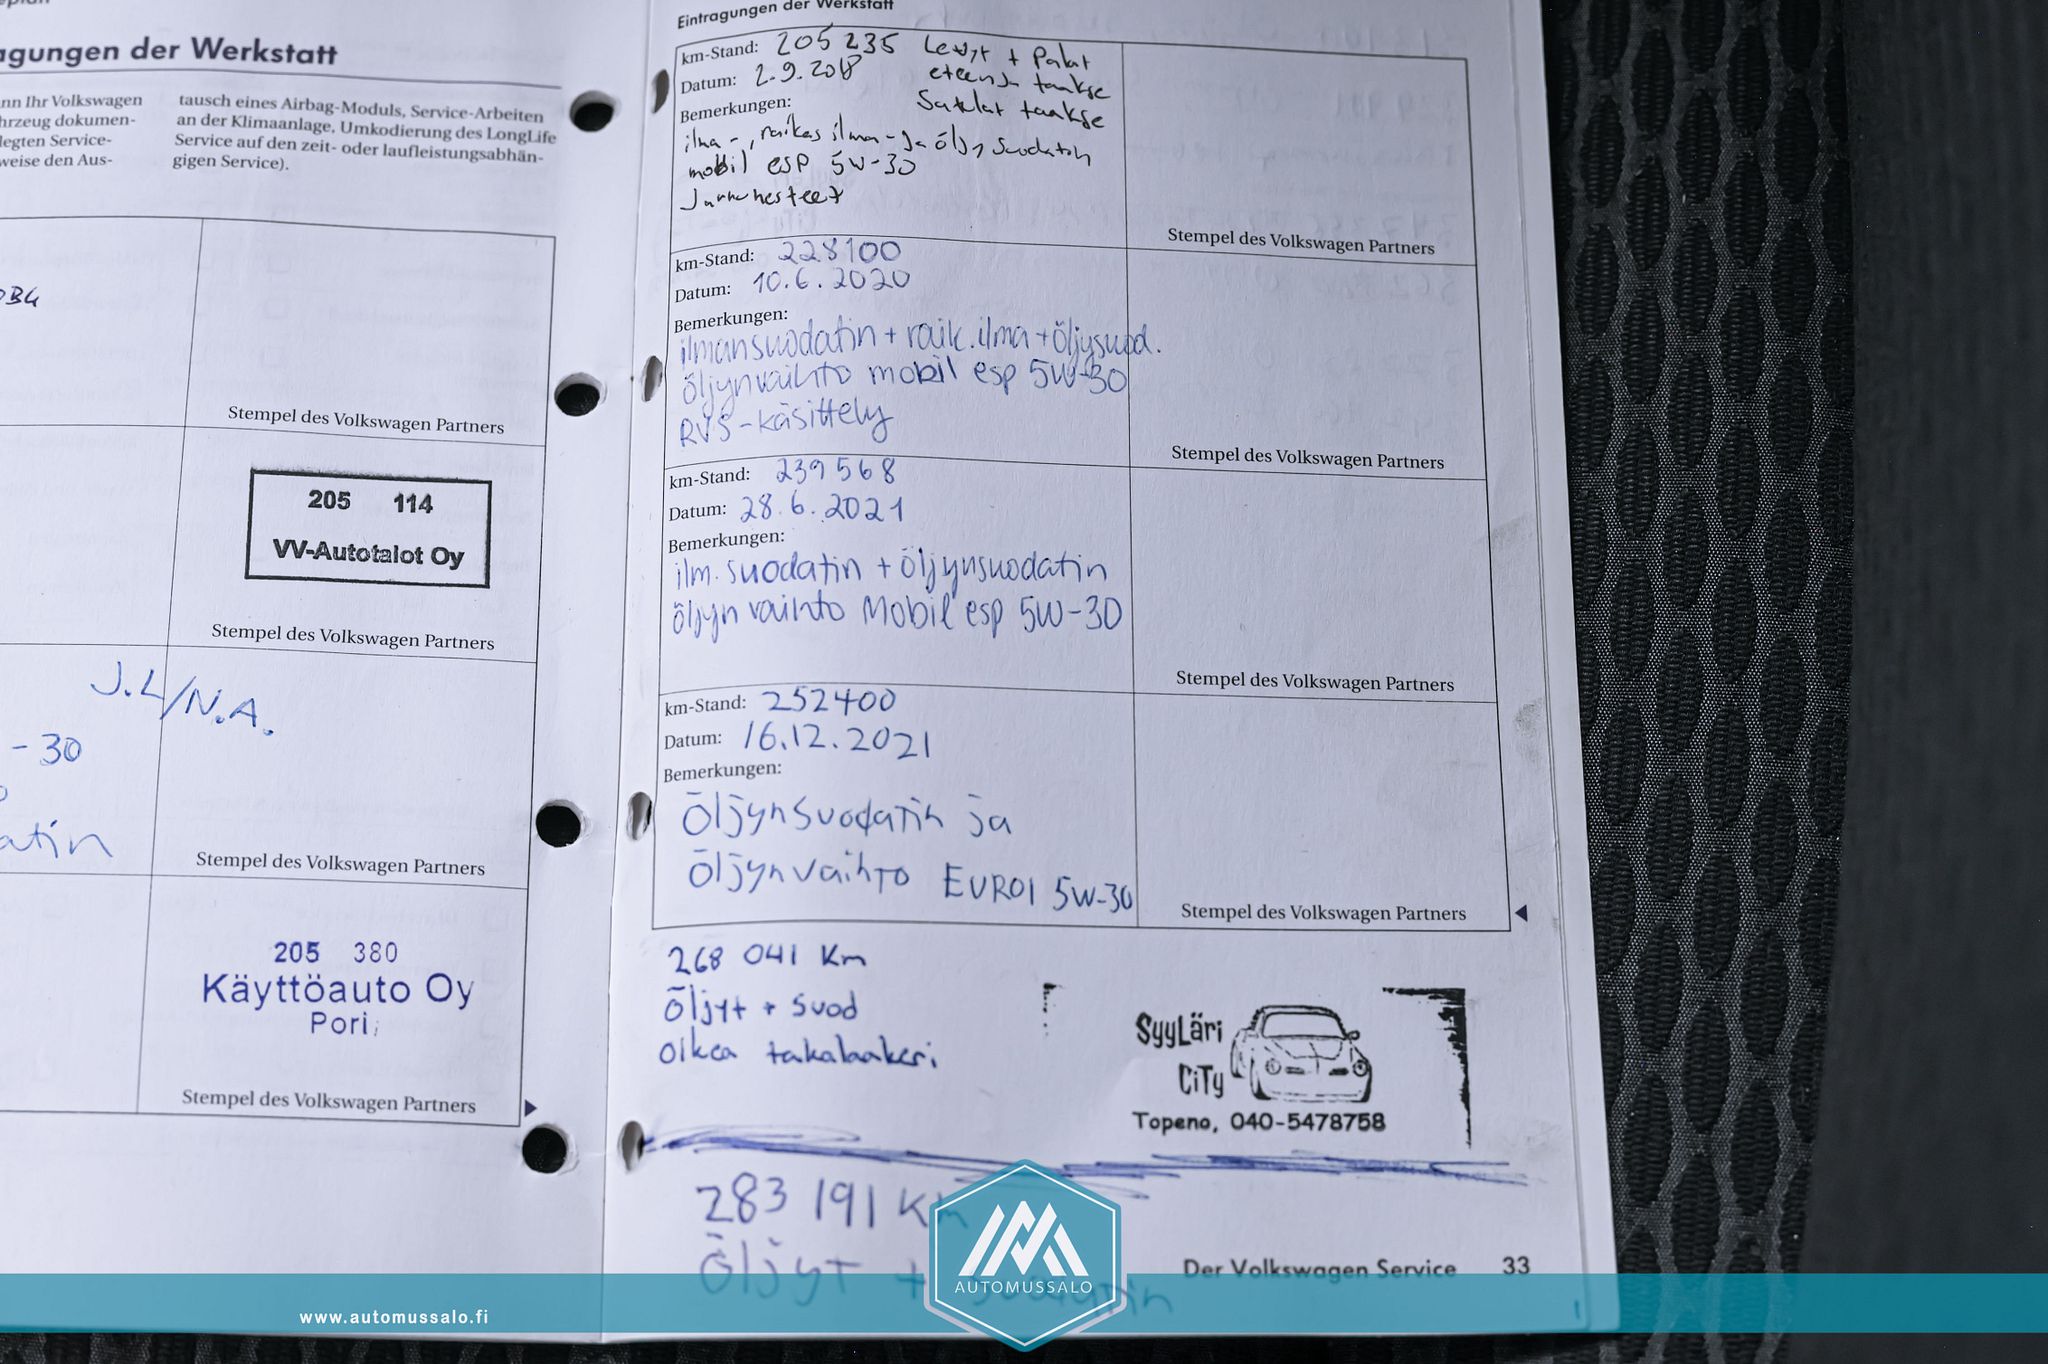 agungen der Werkstatt
nn Ihr Volkswagen
hrzeug dokumen-
legten Service-
weise den Aus-
tausch eines Airbag-Moduls, Service-Arbeiten
an der Klimaanlage, Umkodierung des LongLife
Service auf den zeit- oder laufleistungsabhän-
gigen Service).
Stempel des Volkswagen Partners
205 114
VV-Autotalot Oy
Stempel des Volkswagen Partners
J.L/N.A.
-30
atin
Stempel des Volkswagen Partners
205 380
Käyttöauto Oy
Pori
Stempel des Volkswagen Partners
Eintragungen der Werkstatt
km-Stand: 205 235 Levyt + Palat
Datum: 2.9.2018 eteen ja taakse
Bemerkungen: Satulat taakse
ilma-, raikas ilma- ja öljysuodatin
mobil esp 5W-30
Jarrunesteet
Stempel des Volkswagen Partners
km-Stand: 228100
Datum: 10.6.2020
Bemerkungen:
ilmansuodatin + raik.ilma + öljysuod.
öljynvaihto mobil esp 5W-30
RVS-käsittely
Stempel des Volkswagen Partners
km-Stand: 239568
Datum: 28.6.2021
Bemerkungen:
ilm. suodatin + öljynsuodatin
öljyn vaihto Mobil esp 5W-30
Stempel des Volkswagen Partners
km-Stand: 252400
Datum: 16.12.2021
Bemerkungen:
Öljynsuodatin ja
öljynvaihto EUROL 5W-30
Stempel des Volkswagen Partners
268 041 Km
Öljyt + Suod
Oikea takalaakeri
SyyLäri
CiTy
Topeno, 040-5478758
283 191 Km
Öljyt + suodatin
Der Volkswagen Service 33
AUTOMUSSALO
www.automussalo.fi